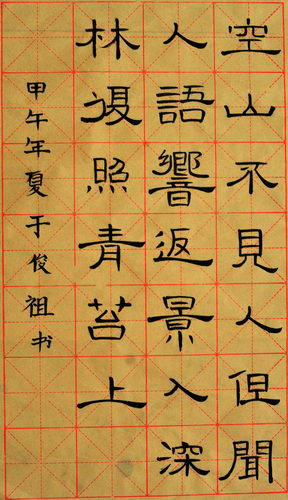 空山不見人但聞
人語響返景入深
林復照青苔上
甲午年夏于俊祖书